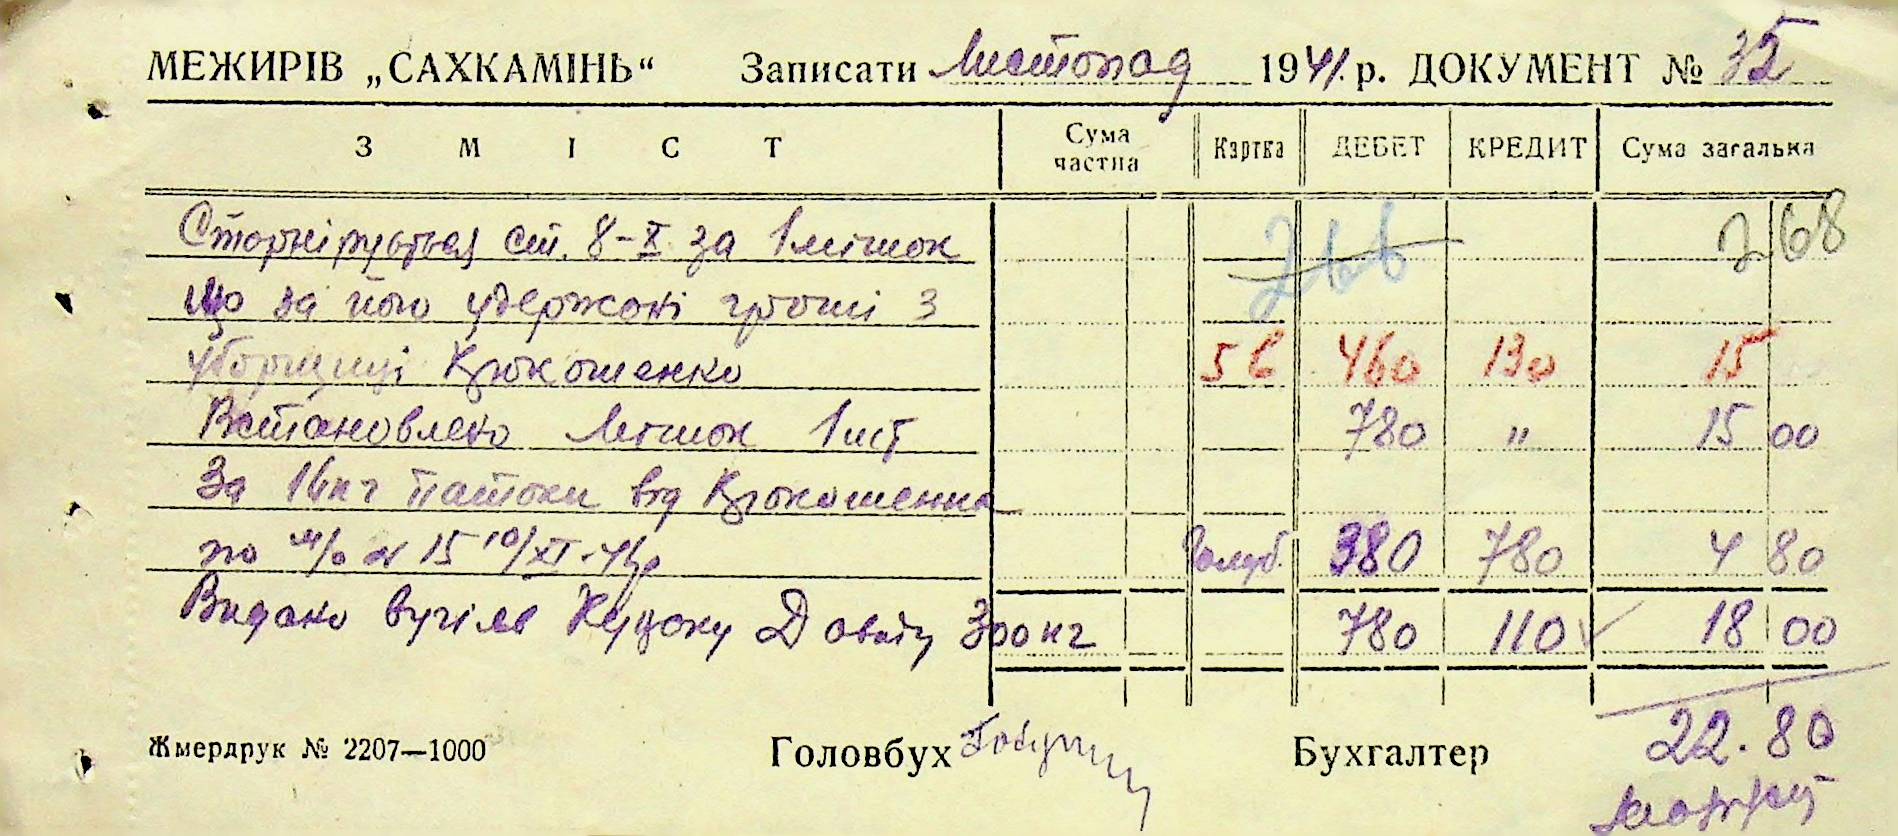 МЕЖИРІВ „САХКАМІНЬ“ Записати Листопад 1941 р. ДОКУМЕНТ № 35
ЗМІСТ Сума частна Картка ДЕБЕТ КРЕДИТ Сума загальна
Сторнірується ст. 8-X за 1 мішок 266 268
що за його удержані гроші з
уборщиці Крокошенко 56 460 130 15
Встановлено мішок 1 шт 780 " 15 00
За 16 кг патоки від Крокошенка
по м/о № 15 10/XI-41р 380 780 4 80
Видано вугіля Куцоку Давиду 300 кг 780 110 18 00
22.80
Жмердрук № 2207—1000 Головбух Бухгалтер